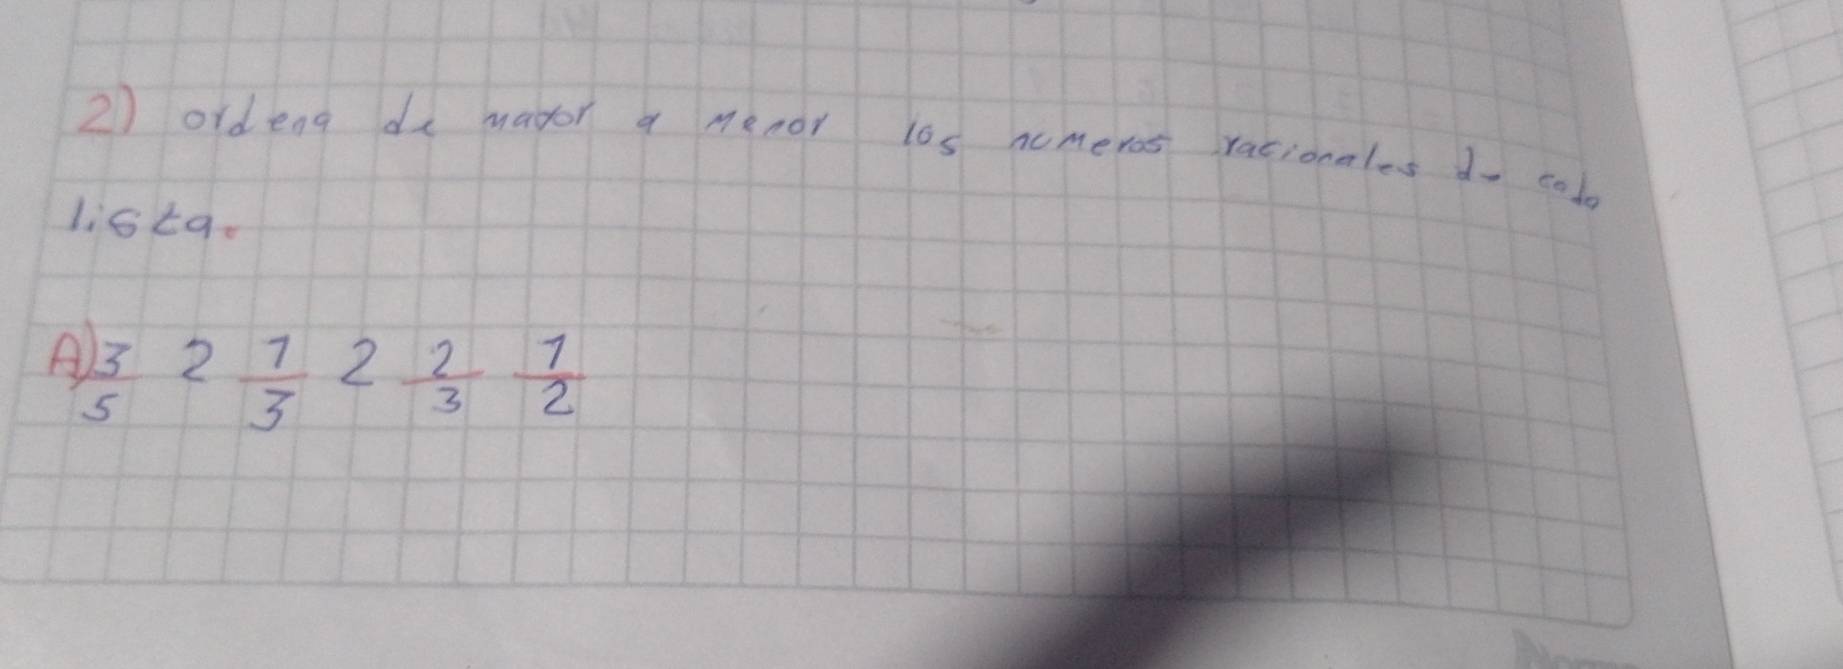 2) ordena de mayor a menor los numeros racionales de cada
lista.
A) 3/5 2 1/3 2 2/3 1/2